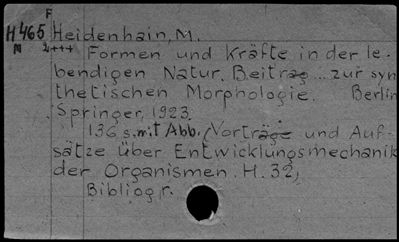 F
H 465 Heidenhain, M.
M 2+++
Formen und Kräfte in der le-
bendigen Natur. Beitrag... zur syn
thetischen Morphologie. Berlin
Springer, 1923.
136 s. mit Abb. (Vorträge und Auf-
sätze über Entwicklungsmechanik
der Organismen. H. 32,
Bibliogr.